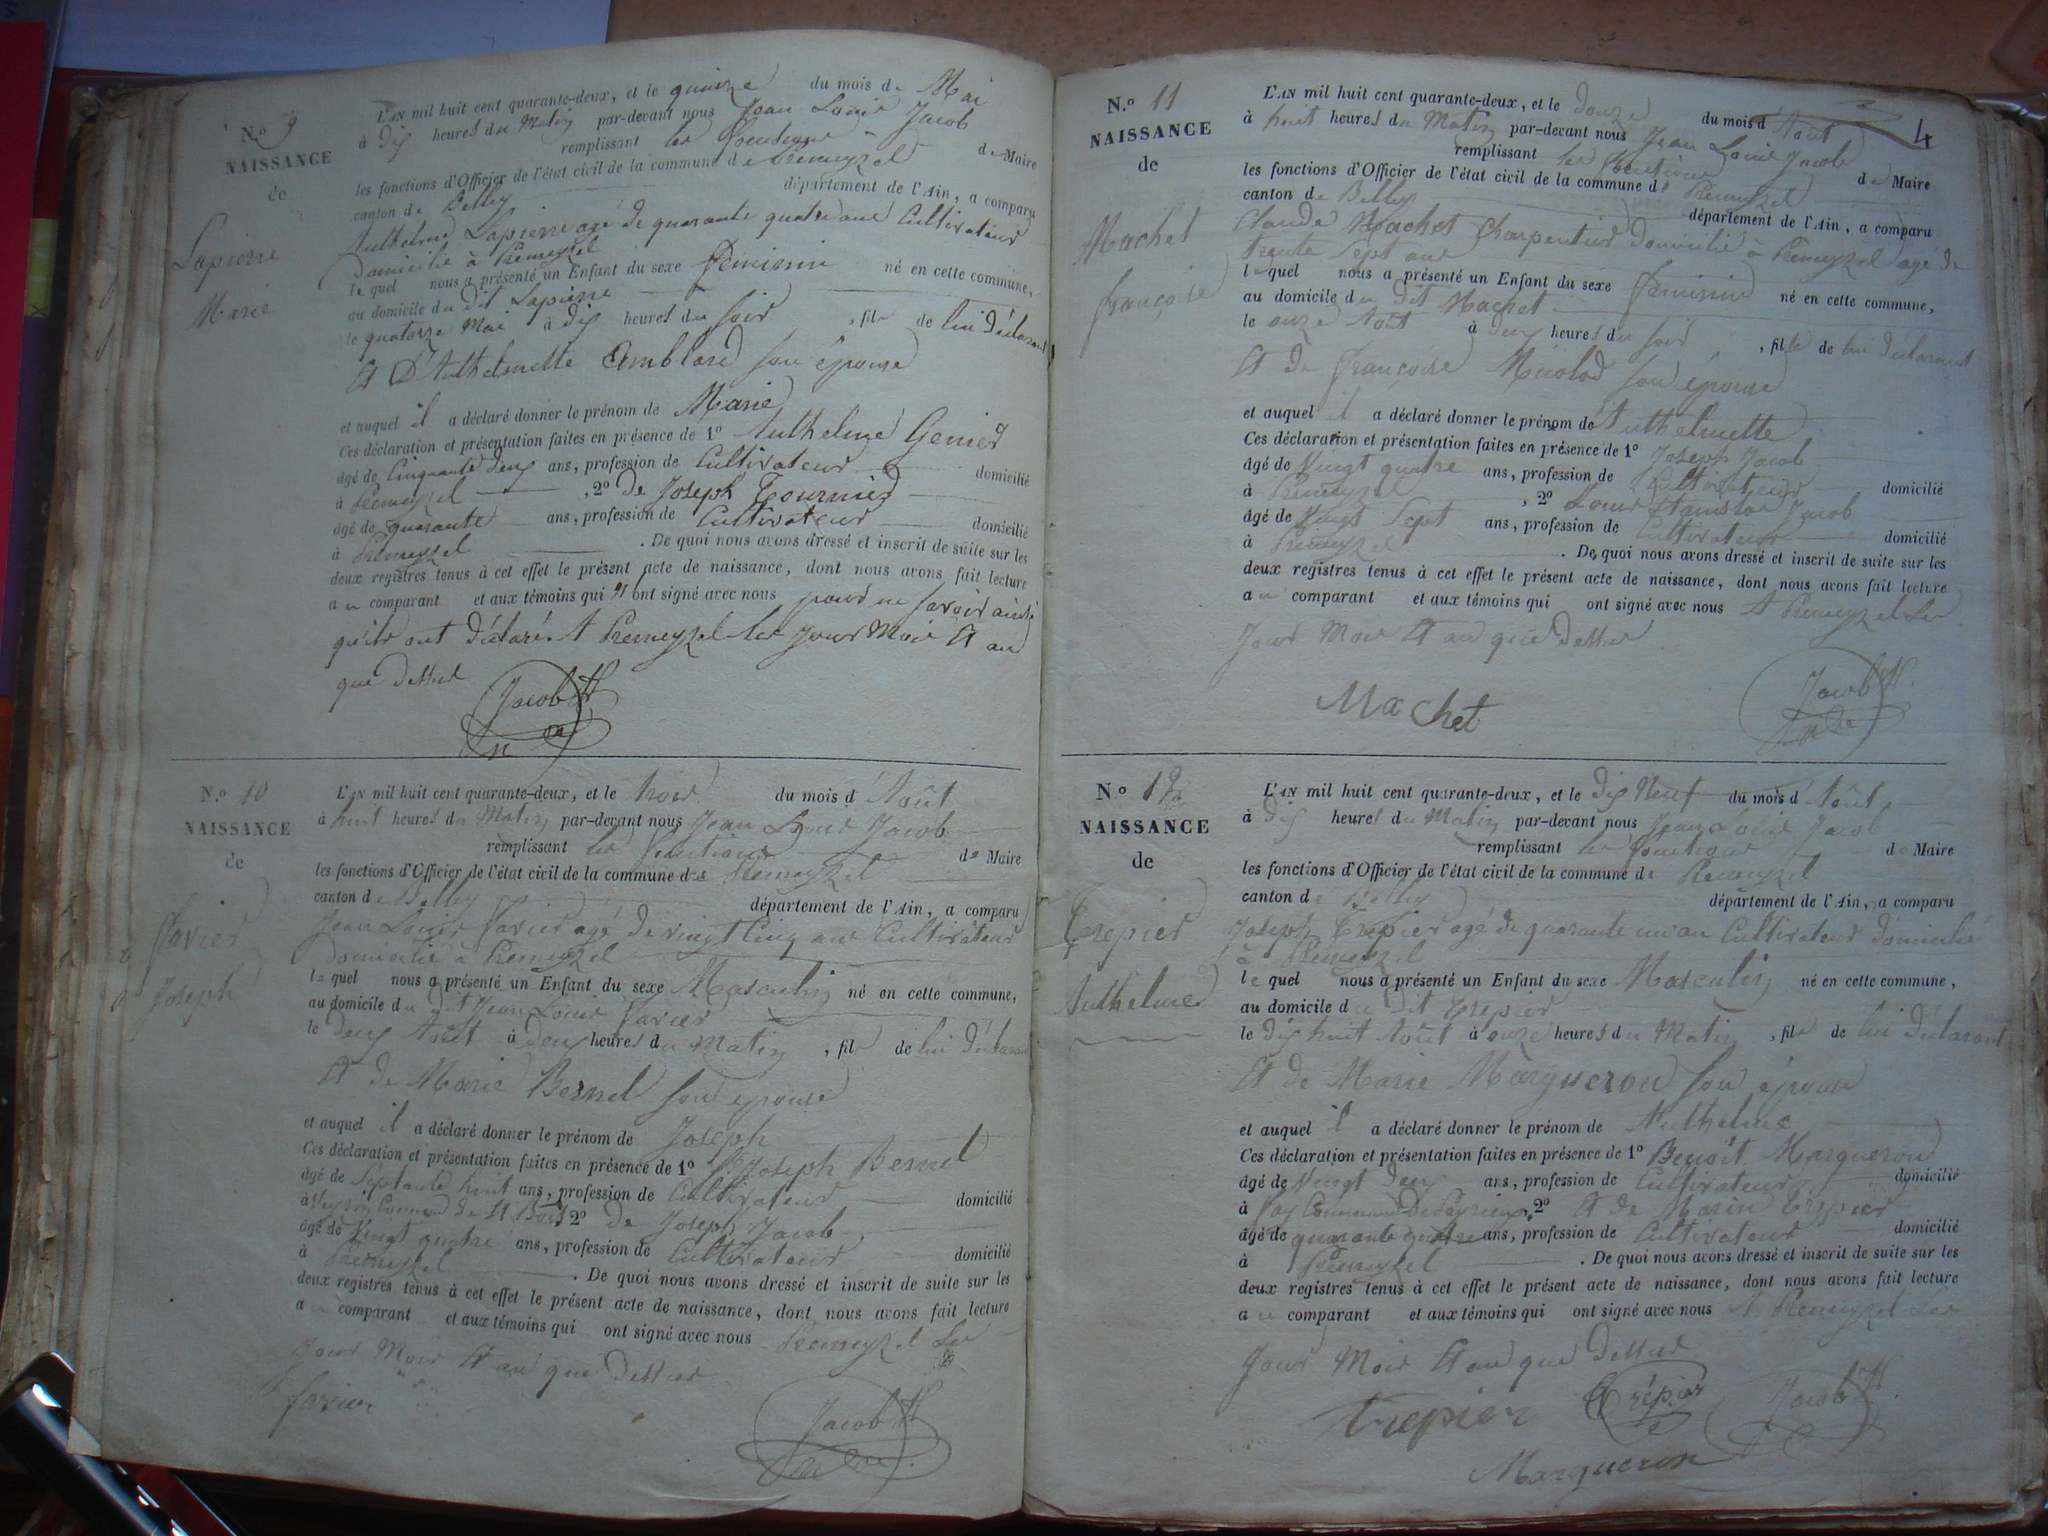 N.º 9
NAISSANCE
de
Lapierre
Marie
L'AN mil huit cent quarante-deux, et le quinze du mois de Mai
à dix heures du Matin par-devant nous Jean Louis Jacob
remplissant les fonctions de Maire
les fonctions d'Officier de l'état civil de la commune de Premeyzel
canton de Belley département de l'Ain, a comparu
Anthelme Lapierre agé de quarante quatre ans Cultivateur
domicilié à Premeyzel
lequel nous a présenté un Enfant du sexe féminin né en cette commune,
au domicile du dit Lapierre
le quatorze Mai à dix heures du soir, fille de lui déclarant
Et D'Anthelmette Amblard son épouse
et auquel il a déclaré donner le prénom de Marie
Ces déclaration et présentation faites en présence de 1º Anthelme Genier
âgé de Cinquante deux ans, profession de Cultivateur domicilié
à Premeyzel, 2º de Joseph Tournier
âgé de quarante ans, profession de Cultivateur domicilié
à Premeyzel. De quoi nous avons dressé et inscrit de suite sur les
deux registres tenus à cet effet le présent acte de naissance, dont nous avons fait lecture
au comparant et aux témoins qui ont signé avec nous pour ne savoir ainsi
qu'ils ont déclaré. A Premeyzel les Jour Mois Et an
que dessus
Jacob
N.º 10
NAISSANCE
de
Favier
Joseph
L'AN mil huit cent quarante-deux, et le trois du mois d'Août
à huit heures du Matin par-devant nous Jean Louis Jacob
remplissant les fonctions de Maire
les fonctions d'Officier de l'état civil de la commune de Premeyzel
canton de Belley département de l'Ain, a comparu
Jean Louis Favier agé de vingt cinq ans Cultivateur
domicilié à Premeyzel
lequel nous a présenté un Enfant du sexe Masculin né en cette commune,
au domicile du dit Jean Louis Favier
le deux Août à deux heures du Matin, fils de lui déclarant
Et de Marie Bernel son épouse
et auquel il a déclaré donner le prénom de Joseph
Ces déclaration et présentation faites en présence de 1º Joseph Bernel
âgé de Septante huit ans, profession de Cultivateur domicilié
à de St Bois 2º de Joseph Jacob
âgé de Vingt quatre ans, profession de Cultivateur domicilié
à Premeyzel. De quoi nous avons dressé et inscrit de suite sur les
deux registres tenus à cet effet le présent acte de naissance, dont nous avons fait lecture
au comparant et aux témoins qui ont signé avec nous Premeyzel les
Jour Mois Et an que dessus
favier
Jacob
4
N.º 11
NAISSANCE
de
Machet
françoise
L'AN mil huit cent quarante-deux, et le douze du mois d'Août
à huit heures du Matin par-devant nous Jean Louis Jacob
remplissant les fonctions de Maire
les fonctions d'Officier de l'état civil de la commune de Premeyzel
canton de Belley département de l'Ain, a comparu
Claude Machet Charpentier domicilié à Premeyzel agé de
trente Sept ans
lequel nous a présenté un Enfant du sexe féminin né en cette commune,
au domicile du dit Machet
le onze Août à deux heures du soir, fille de lui déclarant
Et de françoise son épouse
et auquel il a déclaré donner le prénom de Anthelmette
Ces déclaration et présentation faites en présence de 1º Joseph Jacob
âgé de Vingt quatre ans, profession de Cultivateur domicilié
à Premeyzel, 2º Louis Stanislas Jacob
âgé de Vingt Sept ans, profession de Cultivateur domicilié
à Premeyzel. De quoi nous avons dressé et inscrit de suite sur les
deux registres tenus à cet effet le présent acte de naissance, dont nous avons fait lecture
au comparant et aux témoins qui ont signé avec nous A Premeyzel les
Jour Mois Et an que dessus
Machet
Jacob
N.º 12
NAISSANCE
de
Trepier
Anthelme
L'AN mil huit cent quarante-deux, et le dix Neuf du mois d'Août
à dix heures du Matin par-devant nous Jean Louis Jacob
remplissant les fonctions de Maire
les fonctions d'Officier de l'état civil de la commune de Premeyzel
canton de Belley département de l'Ain, a comparu
Joseph Trepier agé de quarante un an Cultivateur domicilié
à Premeyzel
lequel nous a présenté un Enfant du sexe Masculin né en cette commune,
au domicile du dit Trepier
le dix huit Août à onze heures du Matin, fils de lui déclarant
Et de Marie Margueron son épouse
et auquel il a déclaré donner le prénom de Anthelme
Ces déclaration et présentation faites en présence de 1º Benoît Margueron
âgé de Vingt deux ans, profession de Cultivateur domicilié
à Commune de Peyrieu, 2º Et de Marin Trepier
âgé de quarante quatre ans, profession de Cultivateur domicilié
à Premeyzel. De quoi nous avons dressé et inscrit de suite sur les
deux registres tenus à cet effet le présent acte de naissance, dont nous avons fait lecture
au comparant et aux témoins qui ont signé avec nous A Premeyzel les
Jour Mois Et an que dessus
trepier Trépier Jacob
Margueron